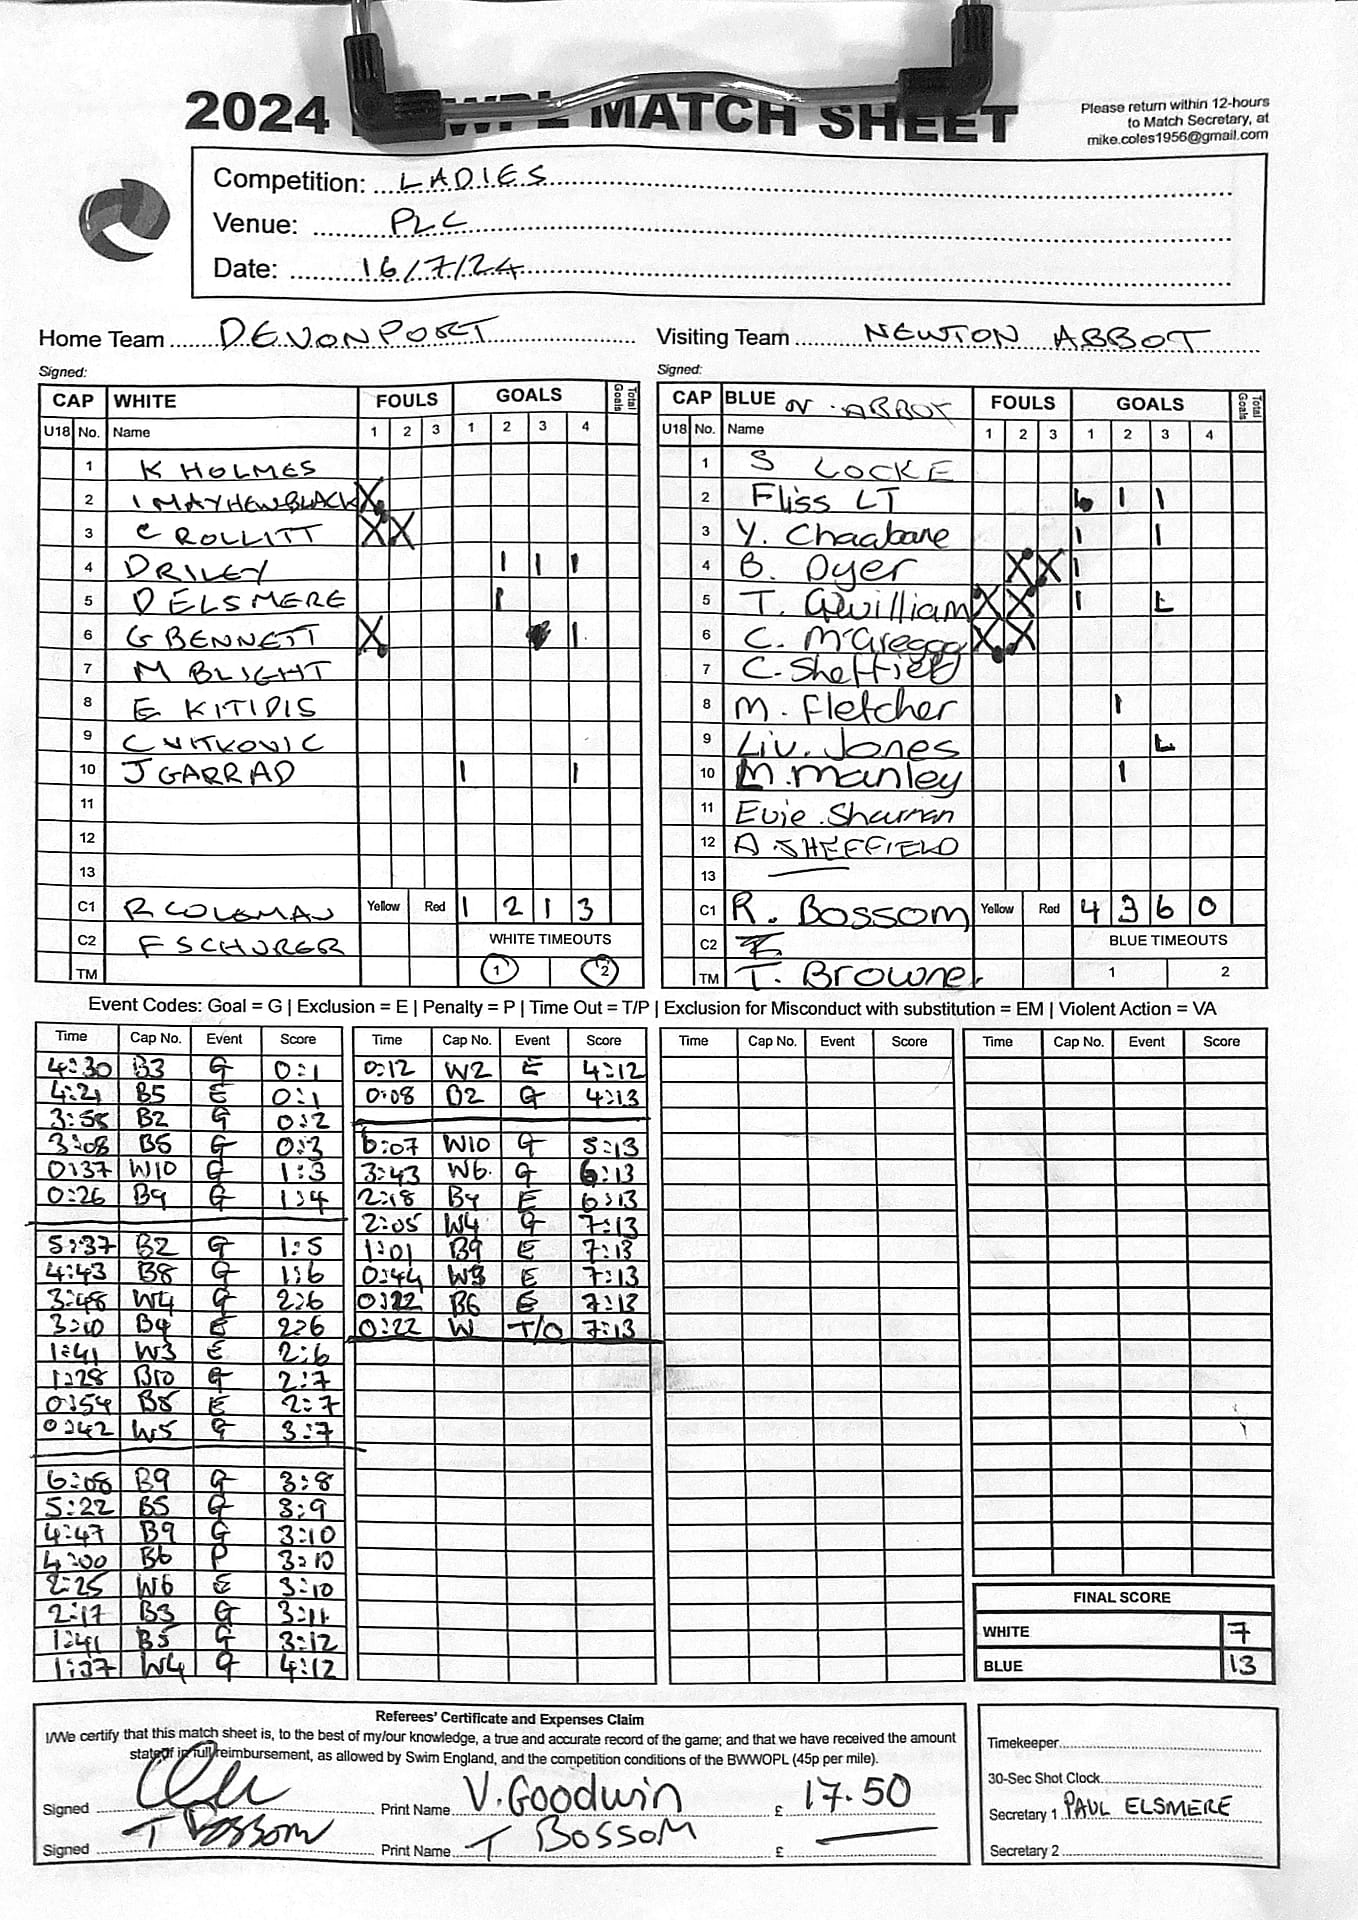 2024 MATCH SHEET
Please return within 12-hours
to Match Secretary, at
mike.coles1956@gmail.com
Competition: LADIES
Venue: PLC
Date: 16/7/24
Home Team DEVONPORT
Visiting Team NEWTON ABBOT
Signed:
Signed:
CAP WHITE FOULS GOALS Total Goals
U18 No. Name 1 2 3 1 2 3 4
1 K HOLMES
2 I MAYHEWBLACK X
3 C ROLLITT X X
4 D RILEY I I I
5 D ELSMERE I
6 G BENNETT X I
7 M BLIGHT
8 E KITIDIS
9 C VITKOVIC
10 J GARRAD I I
11
12
13
C1 R COLEMAN Yellow Red 1 2 1 3
C2 F SCHURER WHITE TIMEOUTS
TM 1 2
CAP BLUE N. ABBOT FOULS GOALS Total Goals
U18 No. Name 1 2 3 1 2 3 4
1 S LOCKE
2 Fliss LT I I I
3 Y. Chaabane I I
4 B. Dyer X X I
5 T. Gwilliam X X I L
6 C. McGregor X X
7 C. Sheffield
8 M. Fletcher I
9 Liv. Jones L
10 M. Manley I
11 Evie. Sharman
12 A. SHEFFIELD
13
C1 R. BOSSOM Yellow Red 4 3 6 0
C2 BLUE TIMEOUTS
TM T. Browne. 1 2
Event Codes: Goal = G | Exclusion = E | Penalty = P | Time Out = T/P | Exclusion for Misconduct with substitution = EM | Violent Action = VA
Time Cap No. Event Score
4:30 B3 G 0:1
4:21 B5 E 0:1
3:58 B2 G 0:2
3:08 B5 G 0:3
0:37 W10 G 1:3
0:26 B9 G 1:4
5:37 B2 G 1:5
4:43 B8 G 1:6
3:48 W4 G 2:6
3:10 B4 E 2:6
1:41 W3 E 2:6
1:28 B10 G 2:7
0:54 B5 E 2:7
0:42 W5 G 3:7
6:08 B9 G 3:8
5:22 B5 G 3:9
4:47 B9 G 3:10
4:00 B6 P 3:10
2:25 W6 E 3:10
2:17 B3 G 3:11
1:41 B5 G 3:12
1:37 W4 G 4:12
Time Cap No. Event Score
0:12 W2 E 4:12
0:08 B2 G 4:13
6:07 W10 G 5:13
3:43 W6. G 6:13
2:18 B4 E 6:13
2:05 W4 G 7:13
1:01 B9 E 7:13
0:44 W3 E 7:13
0:22 B6 E 7:13
0:22 W T/O 7:13
Time Cap No. Event Score
Time Cap No. Event Score
FINAL SCORE
WHITE 7
BLUE 13
Referees' Certificate and Expenses Claim
I/We certify that this match sheet is, to the best of my/our knowledge, a true and accurate record of the game; and that we have received the amount
stated in full reimbursement, as allowed by Swim England, and the competition conditions of the BWWOPL (45p per mile).
Signed Print Name V. Goodwin £ 17.50
Signed T Bossom Print Name T BOSSOM £
Timekeeper
30-Sec Shot Clock
Secretary 1 PAUL ELSMERE
Secretary 2